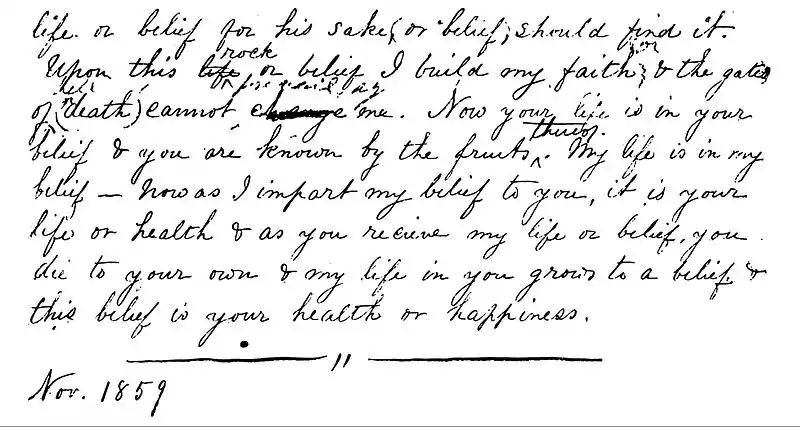 life or belief for his sake (or belief) should find it.
rock
Upon this life, or belief I build my faith, & the gates
hell prevail ag
of (death) cannot change me. Now your life is in your
thereof
belief & you are known by the fruits. My life is in my
belief — Now as I impart my belief to you, it is your
life or health & as you recieve my life or belief, you
die to your own & my life in you grows to a belief &
this belief is your health or happiness.
Nov. 1859